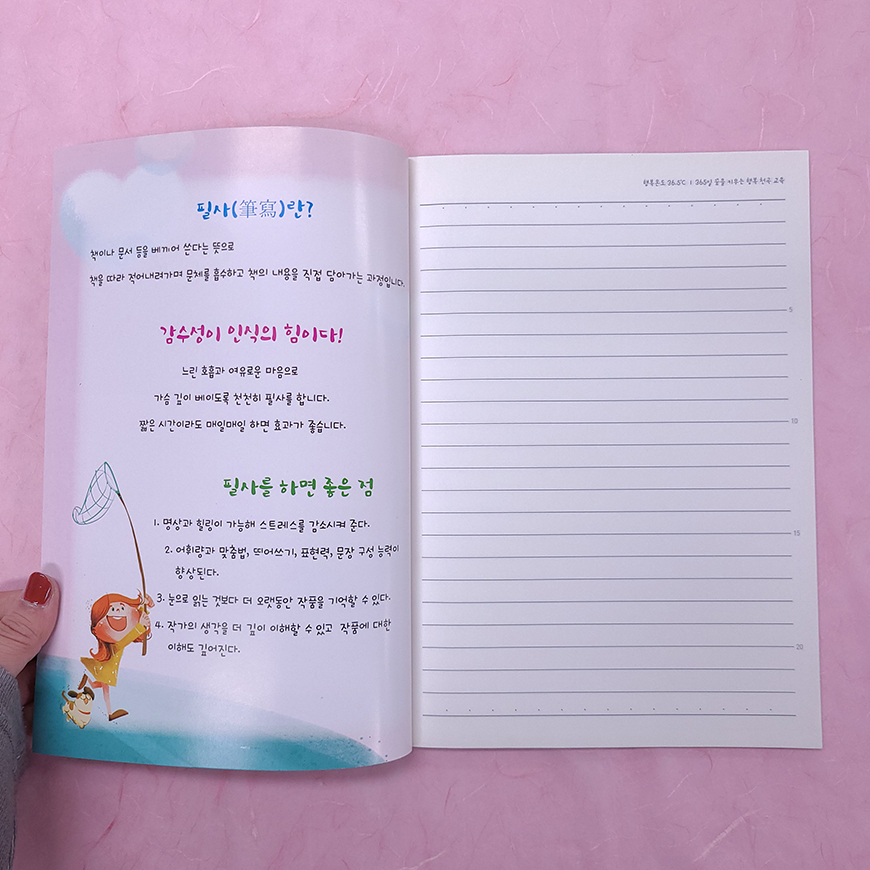 필사(筆寫)란?
책이나 문서 등을 베끼어 쓴다는 뜻으로
책을 따라 적어내려가며 문체를 흡수하고 책의 내용을 직접 담아가는 과정입니다.
감수성이 인식의 힘이다!
느린 호흡과 여유로운 마음으로
가슴 깊이 베이도록 천천히 필사를 합니다.
짧은 시간이라도 매일매일 하면 효과가 좋습니다.
필사를 하면 좋은 점
1. 명상과 힐링이 가능해 스트레스를 감소시켜 준다.
2. 어휘량과 맞춤법, 띄어쓰기, 표현력, 문장 구성 능력이
향상된다.
3. 눈으로 읽는 것보다 더 오랫동안 작품을 기억할 수 있다.
4. 작가의 생각을 더 깊이 이해할 수 있고 작품에 대한
이해도 깊어진다.
행복온도 36.5℃ | 365일 꿈을 키우는 행복 전곡 교육
5
10
15
20